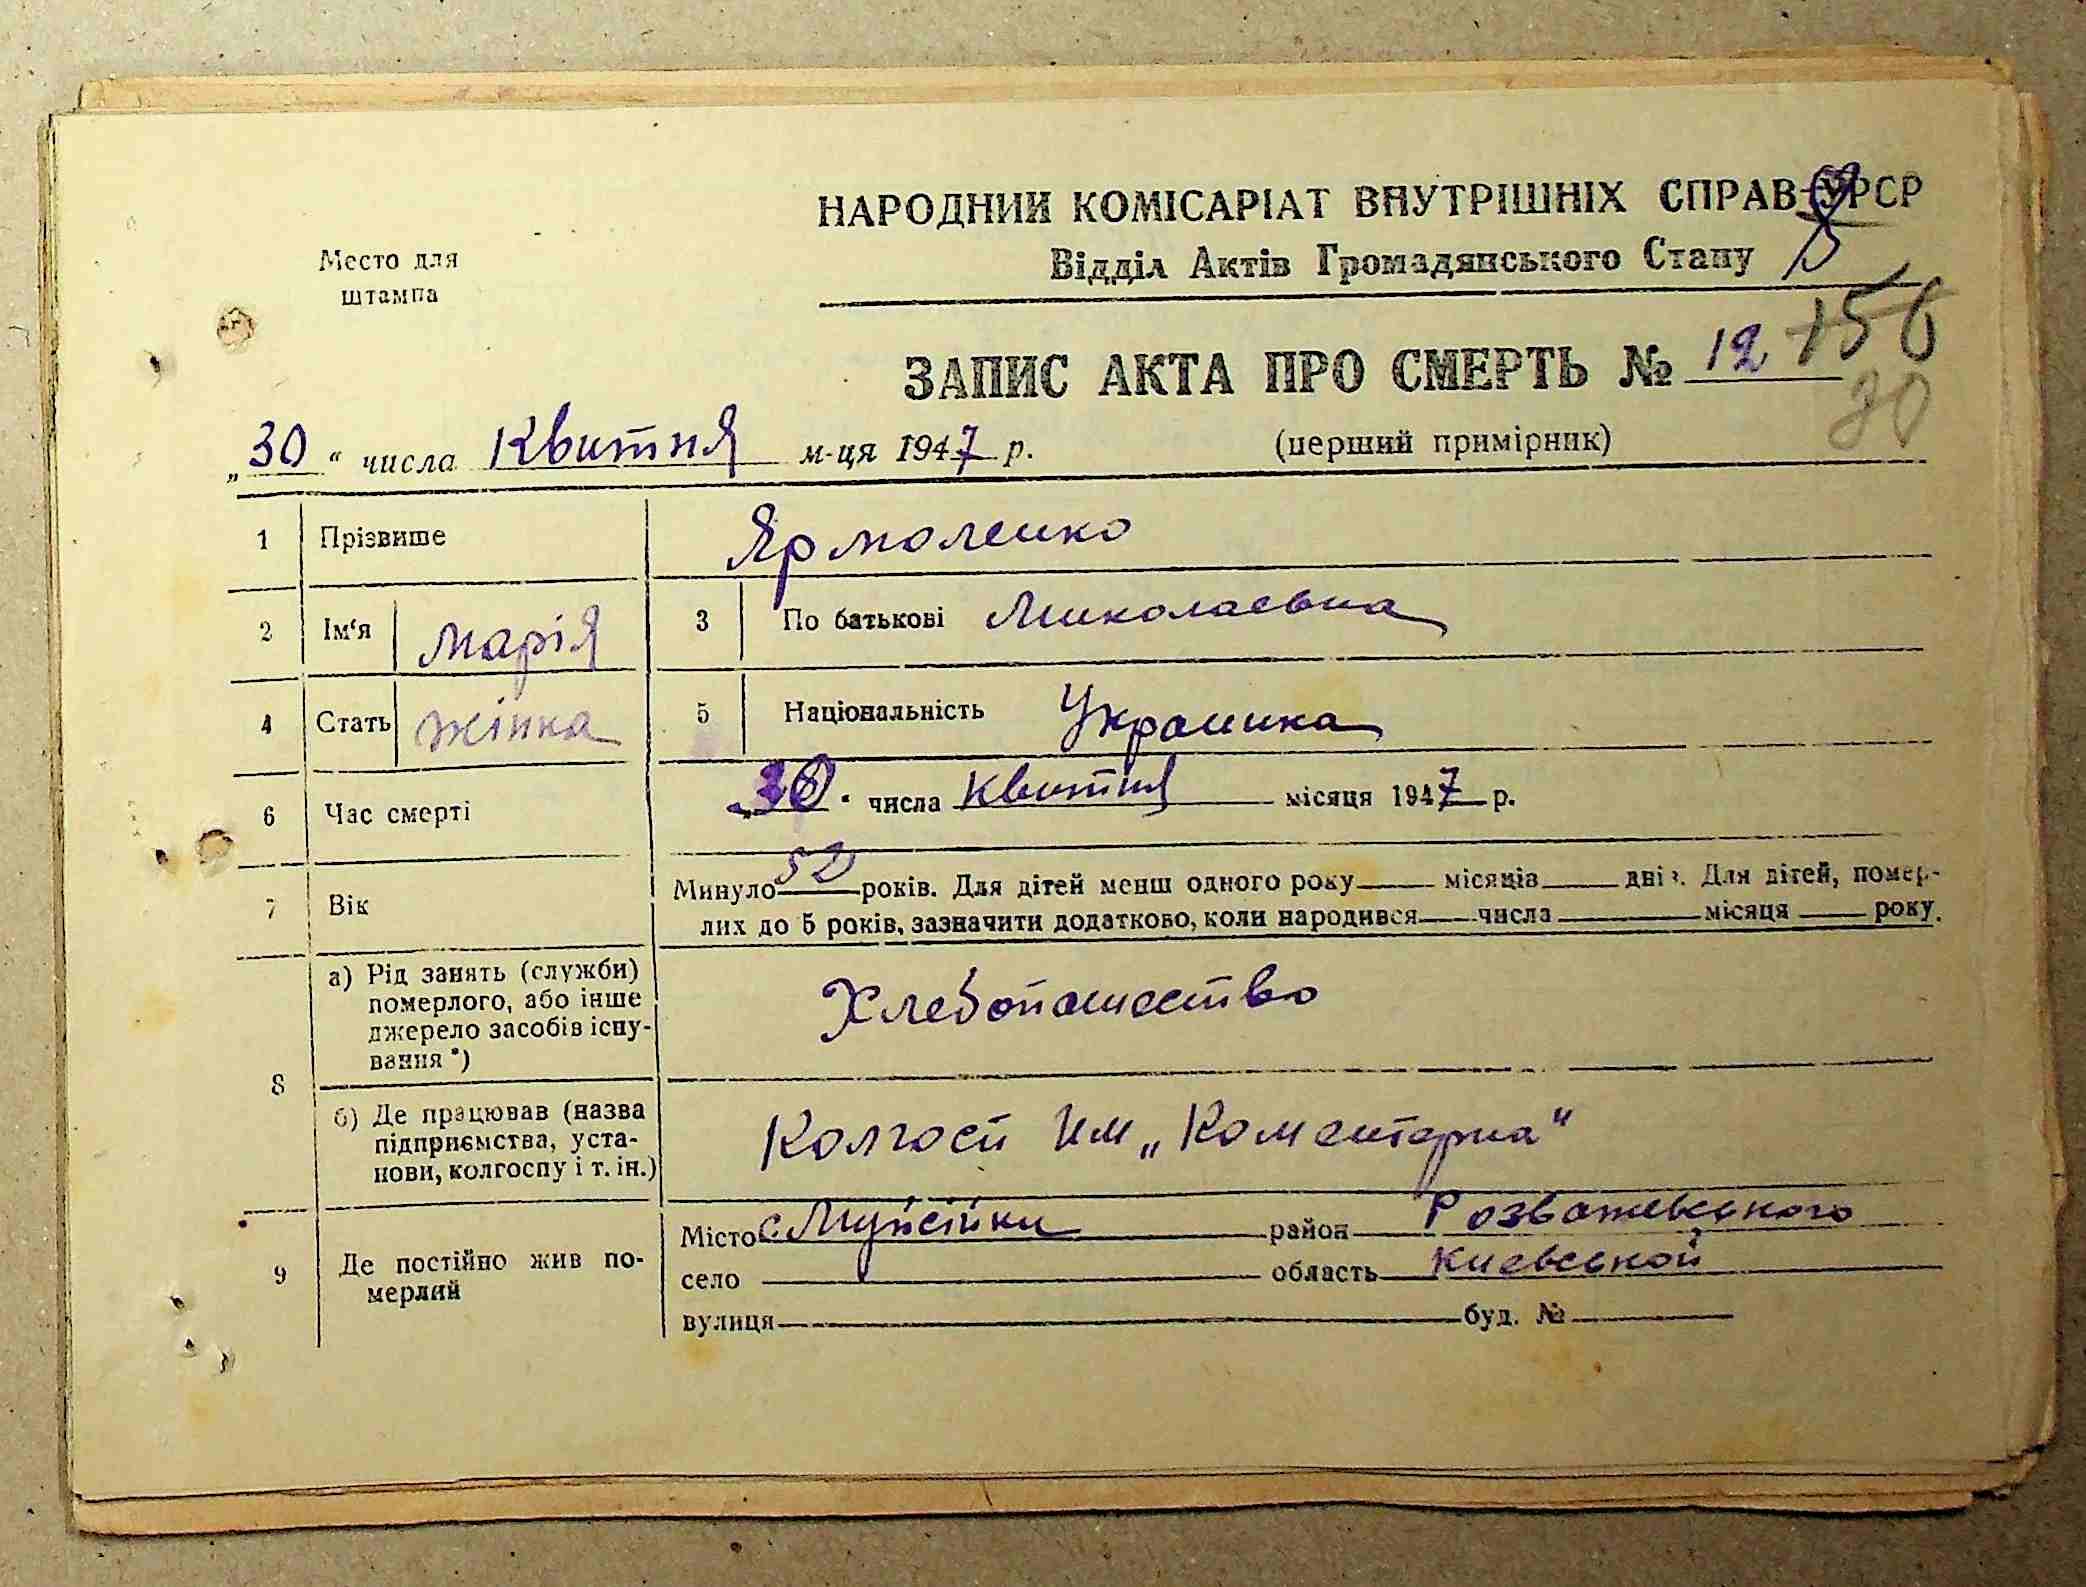 НАРОДНИЙ КОМІСАРІАТ ВНУТРІШНІХ СПРАВ УРСР
Відділ Актів Громадянського Стану
Место для
штампа
ЗАПИС АКТА ПРО СМЕРТЬ № 12 156
30
„30“ числа Квитня м-ця 1947 р. (перший примірник)
1 Прізвище Ярмоленко
2 Ім‘я Марія 3 По батькові Миколаевна
4 Стать жінка 5 Національність Украинка
6 Час смерті „30“ числа Квитня місяця 1947 р.
7 Вік Минуло 52 років. Для дітей менш одного року місяців днів. Для дітей, помер-
лих до 5 років, зазначити додатково, коли народився числа місяця року.
8 а) Рід занять (служби)
померлого, або інше
джерело засобів існу-
вання*)
Хлебопашество
б) Де працював (назва
підприємства, уста-
нови, колгоспу і т. ін.)
Колгосп Им „Коментерна“
9 Де постійно жив по-
мерлий
Місто с. Муйсійки район Розважевського
село область Киевськой
вулиця буд. №